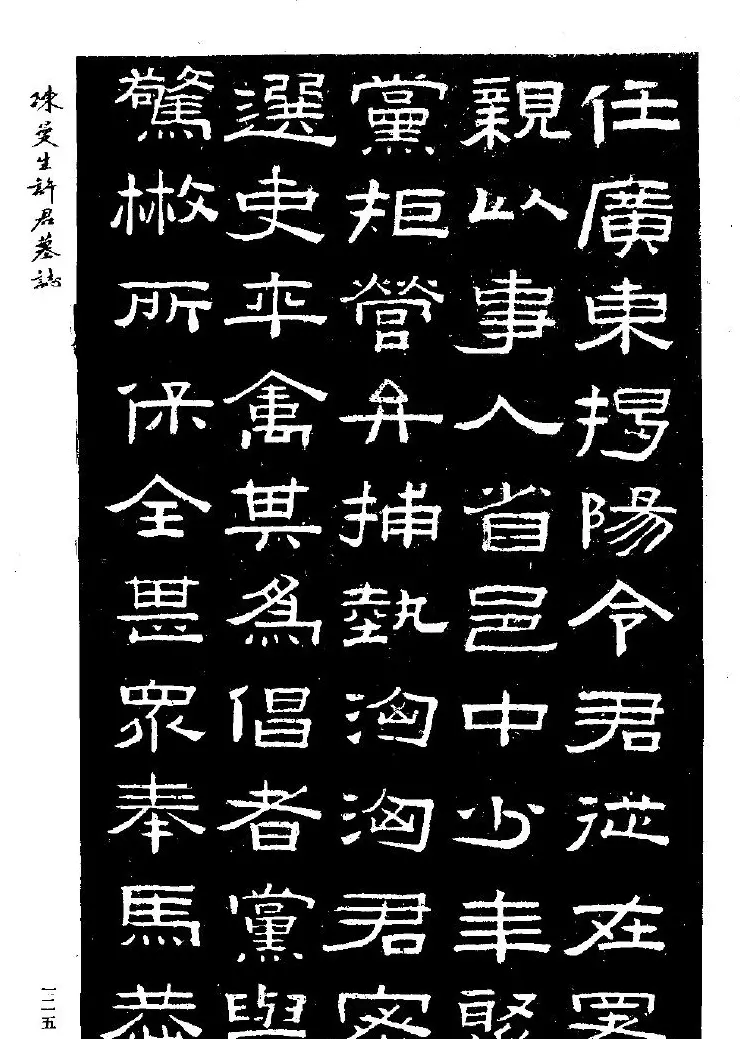 任廣東揭陽令君從在署
親以事入省邑中少年聚
黨拒營弁捕埶洶洶君密
選吏卒禽其爲倡者黨與
驚散所保全甚眾奉馬恭
陳曼生許君墓誌
一二五